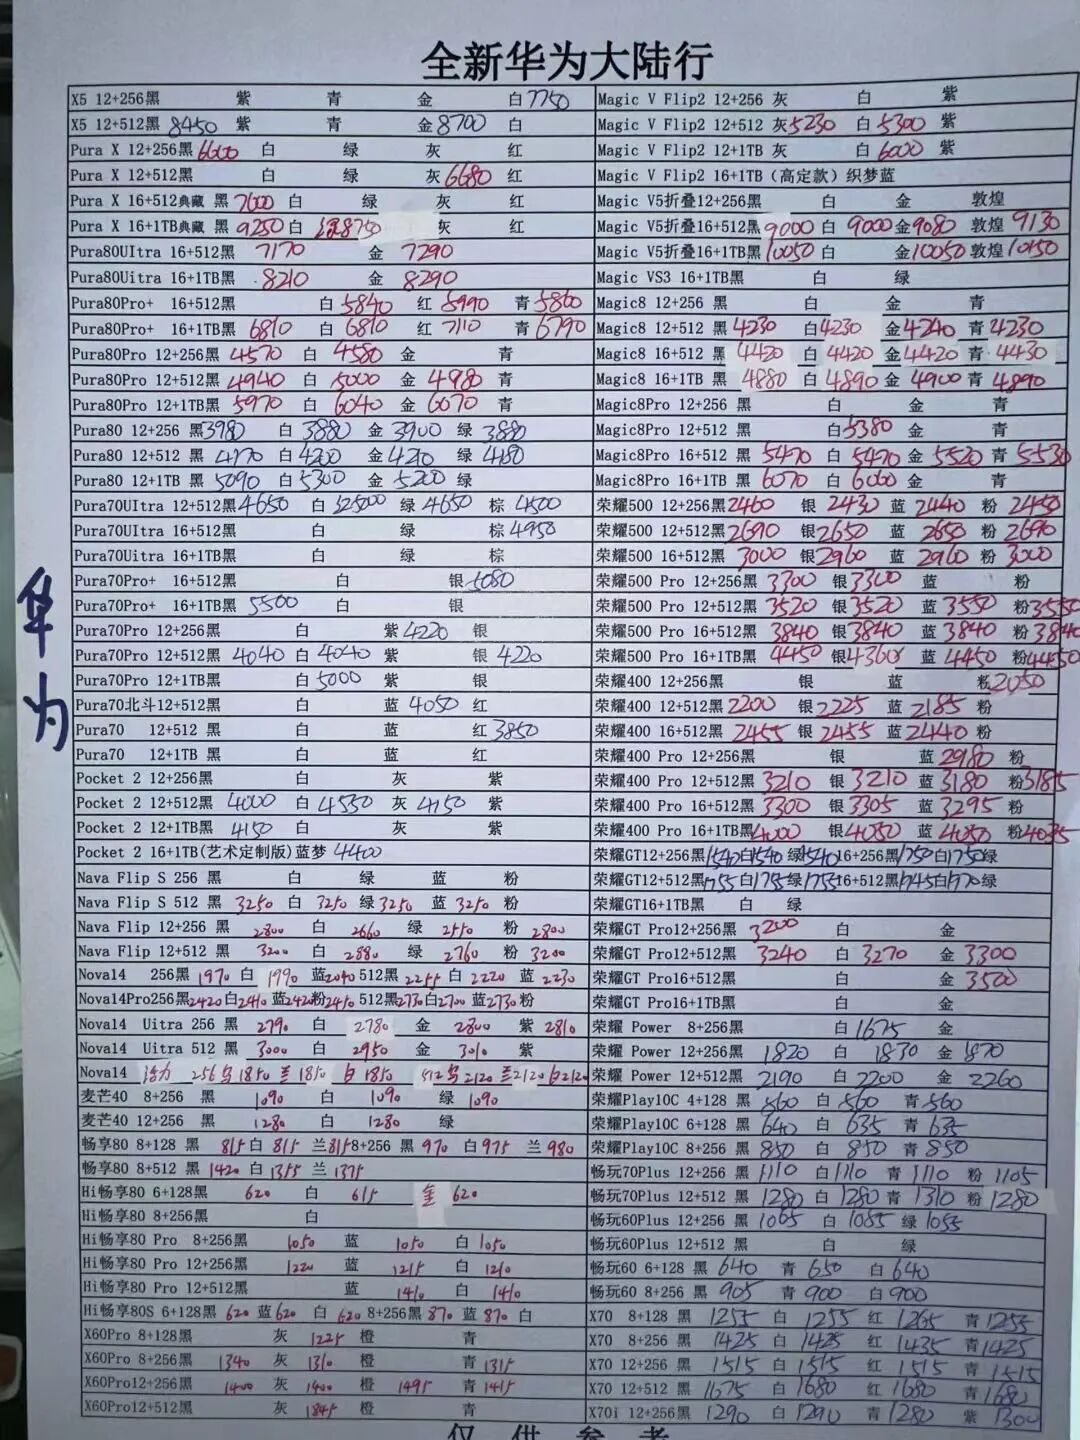 全新华为大陆行
华为
X5 12+256黑 紫 青 金 白7750
X5 12+512黑 8450 紫 青 金8700 白
Pura X 12+256黑6600 白 绿 灰 红
Pura X 12+512黑 白 绿 灰6680 红
Pura X 16+512典藏 黑 7600 白 绿 灰 红
Pura X 16+1TB典藏 黑 9250 白 8750 灰 红
Pura80UItra 16+512黑 7170 金 7290
Pura80Uitra 16+1TB黑 8210 金 8290
Pura80Pro+ 16+512黑 白 5840 红 5990 青 5860
Pura80Pro+ 16+1TB黑 6810 白 6810 红 7110 青 6790
Pura80Pro 12+256黑 4570 白 4580 金 青
Pura80Pro 12+512黑 4940 白 5000 金 4980 青
Pura80Pro 12+1TB黑 5970 白 6040 金 6070 青
Pura80 12+256 黑3980 白 3880 金 3900 绿 3880
Pura80 12+512 黑 4170 白4200 金 4210 绿 4180
Pura80 12+1TB 黑 5090 白5300 金 5200 绿
Pura70UItra 12+512黑4650 白 绿 4650 棕 4500
Pura70UItra 16+512黑 白 绿 棕 4950
Pura70Uitra 16+1TB黑 白 绿 棕
Pura70Pro+ 16+512黑 白 银 5080
Pura70Pro+ 16+1TB黑 5500 白 银
Pura70Pro 12+256黑 白 紫 4220 银
Pura70Pro 12+512黑 4040 白 4040 紫 银 4220
Pura70Pro 12+1TB黑 白 5000 紫 银
Pura70北斗12+512黑 白 蓝 4050 红
Pura70 12+512 黑 白 蓝 红 3850
Pura70 12+1TB 黑 白 蓝 红
Pocket 2 12+256黑 白 灰 紫
Pocket 2 12+512黑 4000 白 4550 灰 4150 紫
Pocket 2 12+1TB黑 4150 白 灰 紫
Pocket 2 16+1TB(艺术定制版)蓝梦 4400
Nava Flip S 256 黑 白 绿 蓝 粉
Nava Flip S 512 黑 3250 白 3250 绿 3250 蓝 3250 粉
Nava Flip 12+256 黑 2800 白 2660 绿 2550 粉 2800
Nava Flip 12+512 黑 3200 白 2880 绿 2760 粉 3200
Nova14 256黑 1970 白 1990 蓝2040 512黑 2255 白 2220 蓝 2230
Nova14Pro256黑2420白2410 蓝2420粉2410 512黑2730白2700 蓝2730粉
Nova14 Uitra 256 黑 2790 白 2780 金 2800 紫 2810
Nova14 Uitra 512 黑 3000 白 2950 金 3010 紫
Nova14 活力 256 1850 兰 1850 白 1850 512 2120 兰2120 白2120
麦芒40 8+256 黑 1090 白 1090 绿 1090
麦芒40 12+256黑 1280 白 1280 绿
畅享80 8+128 黑 815白 815 兰815 8+256 黑 970 白 975 兰 980
畅享80 8+512 黑 1420 白 1355 兰 1375
Hi畅享80 6+128黑 620 白 615 金 620
Hi畅享80 8+256黑 白
Hi畅享80 Pro 8+256黑 1050 蓝 1050 白 1050
Hi畅享80 Pro 12+256黑 1220 蓝 1215 白 1210
Hi畅享80 Pro 12+512黑 蓝 1410 白 1410
Hi畅享80S 6+128黑 620 蓝620 白 620 8+256黑 870 蓝 870 白
X60Pro 8+128黑 灰 1225 橙 青
X60Pro 8+256黑 1340 灰 1310 橙 青 1315
X60Pro12+256黑 1400 灰 1400 橙 1495 青 1415
X60Pro12+512黑 灰 1845 橙 青
Magic V Flip2 12+256 灰 白 紫
Magic V Flip2 12+512 灰5230 白 5300 紫
Magic V Flip2 12+1TB 灰 白 6000 紫
Magic V Flip2 16+1TB（高定款）织梦蓝
Magic V5折叠12+256黑 白 金 敦煌
Magic V5折叠16+512黑 9000 白 9000 金9080 敦煌 9130
Magic V5折叠16+1TB黑 10050 白 金10050 敦煌 10150
Magic VS3 16+1TB黑 白 绿
Magic8 12+256 黑 白 金 青
Magic8 12+512 黑 4230 白4230 金4240 青 4230
Magic8 16+512 黑 4420 白 4420 金4420 青 4430
Magic8 16+1TB 黑 4880 白 4890 金 4900 青 4890
Magic8Pro 12+256 黑 白 金 青
Magic8Pro 12+512 黑 白5380 金 青
Magic8Pro 16+512 黑 5470 白 5470 金 5520 青 5530
Magic8Pro 16+1TB 黑 6070 白 6060 金 青
荣耀500 12+256黑2460 银 2430 蓝 2440 粉 2450
荣耀500 12+512黑2690 银2650 蓝 2650 粉 2690
荣耀500 16+512黑 3000 银2960 蓝 2960 粉 3000
荣耀500 Pro 12+256黑 3300 银 3300 蓝 粉
荣耀500 Pro 12+512黑 3520 银 3520 蓝 3550 粉3550
荣耀500 Pro 16+512黑 3840 银3840 蓝 3840 粉3840
荣耀500 Pro 16+1TB黑 4450 银4360 蓝 4450 粉4450
荣耀400 12+256黑 银 蓝 粉2050
荣耀400 12+512黑 2200 银2225 蓝 2185 粉
荣耀400 16+512黑 2455 银 2455 蓝2440 粉
荣耀400 Pro 12+256黑 银 蓝 2980 粉
荣耀400 Pro 12+512黑 3210 银 3210 蓝 3180 粉3185
荣耀400 Pro 16+512黑 3300 银 3305 蓝 3295 粉
荣耀400 Pro 16+1TB黑4000 银4050 蓝 4050 粉4035
荣耀GT12+256黑1540白1540 绿1540 16+256黑1750白1750绿
荣耀GT12+512黑1755白1755绿1755 16+512黑1945白1970绿
荣耀GT16+1TB黑 白 绿
荣耀GT Pro12+256黑 3200 白 金
荣耀GT Pro12+512黑 3240 白 3270 金 3300
荣耀GT Pro16+512黑 白 金 3500
荣耀GT Pro16+1TB黑 白 金
荣耀 Power 8+256黑 白 1675 金
荣耀 Power 12+256黑 1820 白 1830 金 1870
荣耀 Power 12+512黑 2190 白 2200 金 2260
荣耀Play10C 4+128 黑 560 白 560 青560
荣耀Play10C 6+128 黑 640 白 635 青 635
荣耀Play10C 8+256 黑 850 白 850 青 850
畅玩70Plus 12+256 黑 1110 白1110 青 1110 粉 1105
畅玩70Plus 12+512 黑 1280 白 1280 青 1310 粉 1280
畅玩60Plus 12+256 黑 1065 白 1055 绿 1055
畅玩60Plus 12+512 黑 白 绿
畅玩60 6+128 黑 640 青 650 白 640
畅玩60 8+256 黑 905 青 900 白900
X70 8+128 黑 1255 白 1255 红 1265 青 1255
X70 8+256 黑 1425 白 1425 红 1435 青1425
X70 12+256 黑 1515 白 1515 红 1515 青 1515
X70 12+512 黑 1675 白 1680 红 1680 青 1680
X70i 12+256黑 1290 白 1290 青 1280 紫 1300
仅供参考